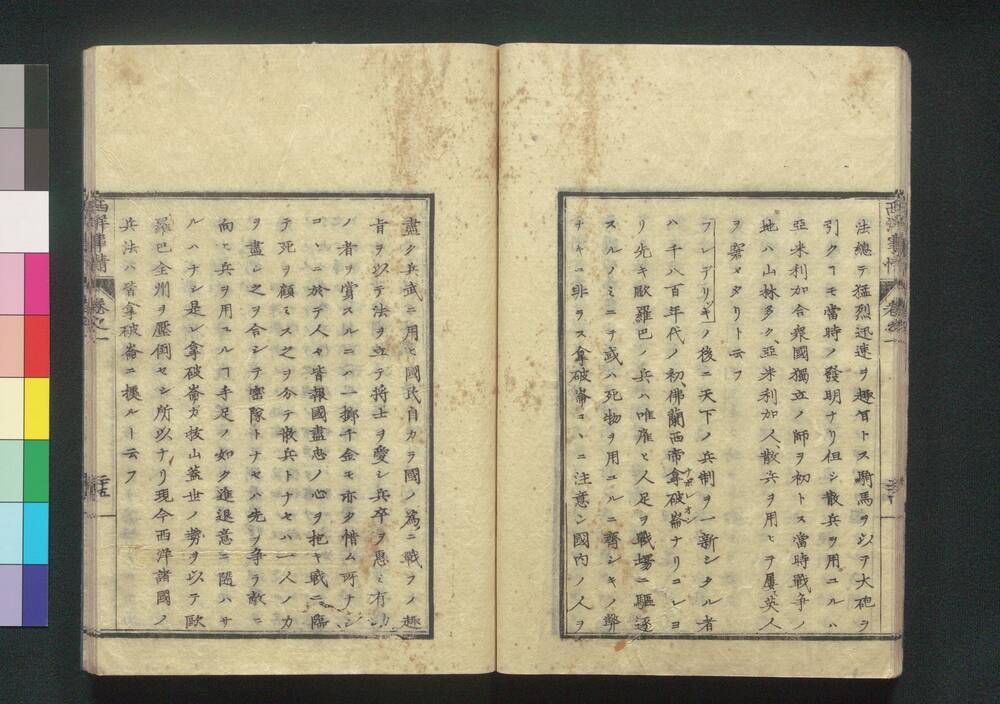 法總テ猛烈迅速ヲ趣旨トス騎馬ヲ以テ大砲ヲ
引クヿモ當時ノ發明ナリ但シ散兵ヲ用ユルハ
亞米利加合衆國獨立ノ師ヲ初トス當時戰争ノ
地ハ山林多ク亞米利加人、散兵ヲ用ヒテ屢英人
ヲ窘メタリト云フ
フレデリッキノ後ニ天下ノ兵制ヲ一新シタル者
ハ千八百年代ノ初、佛蘭西帝拿破崙ナリコレヨ
ナポレオン
リ先キ歐羅巴ノ兵ハ唯雇ヒ人足ヲ戰場ニ驅逐
スルノミニテ或ハ死物ヲ用ユルニ齊シキノ弊
ナキニ非ラス拿破崙コヽニ注意シ國内ノ人ヲ
西洋事情 卷之一
盡ク兵武ニ用ヒ國民自カラ國ノ為ニ戰フノ趣
旨ヲ以テ法ヲ立テ将士ヲ愛シ兵卒ヲ恵ミ有功
ノ者ヲ賞スルニハ一擲千金モ亦タ惜ム所ナシ
コヽニ於テ人々皆報國盡忠ノ心ヲ抱キ戰ニ臨
テ死ヲ顧ミス之ヲ分テ散兵トナセハ一人ノ力
ヲ盡シ之ヲ合シテ密隊トナセハ先ヲ争ヲ敵ニ
向ヒ兵ヲ用ユルヿ手足ノ如ク進退意ニ隨ハサ
ルハナシ是レ拿破崙ガ抜山蓋世ノ勢ヲ以テ歐
羅巴全州ヲ壓倒セシ所以ナリ現今西洋諸國ノ
兵法ハ皆拿破崙ニ據ルト云フ
西洋事情 卷之一 二十五